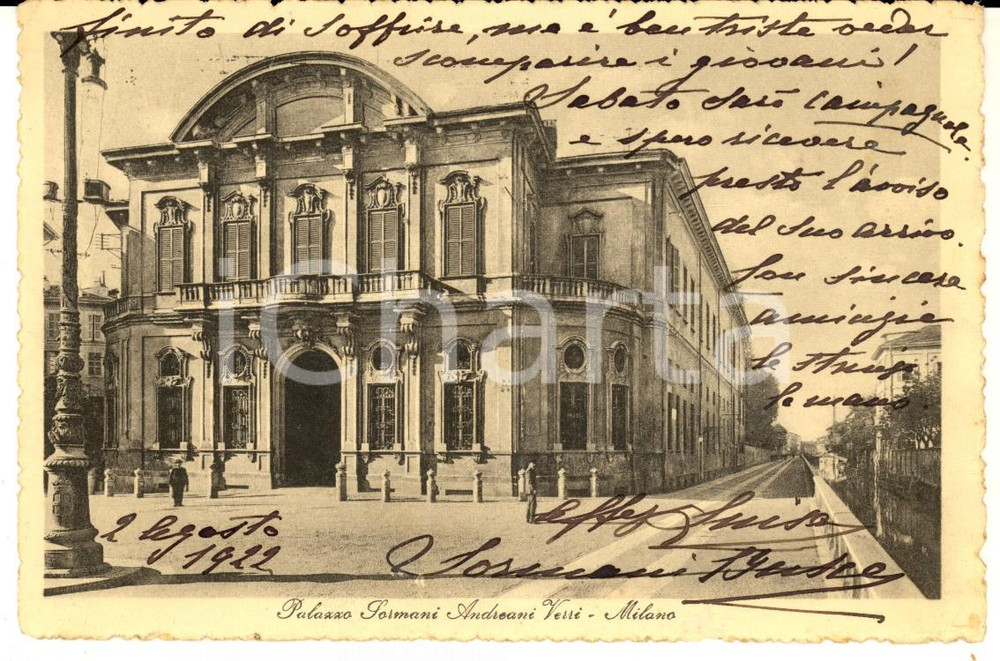 finito di soffrire, ma è ben triste veder
scomparire i giovani!
Sabato sarò campagnola
e spero ricevere
presto l'avviso
del Suo arrivo.
Con sincera
amicizia
le stringo
la mano.
Luisa
Sormani
2 Agosto
1922
iCharta
Palazzo Sormani Andreani Verri - Milano